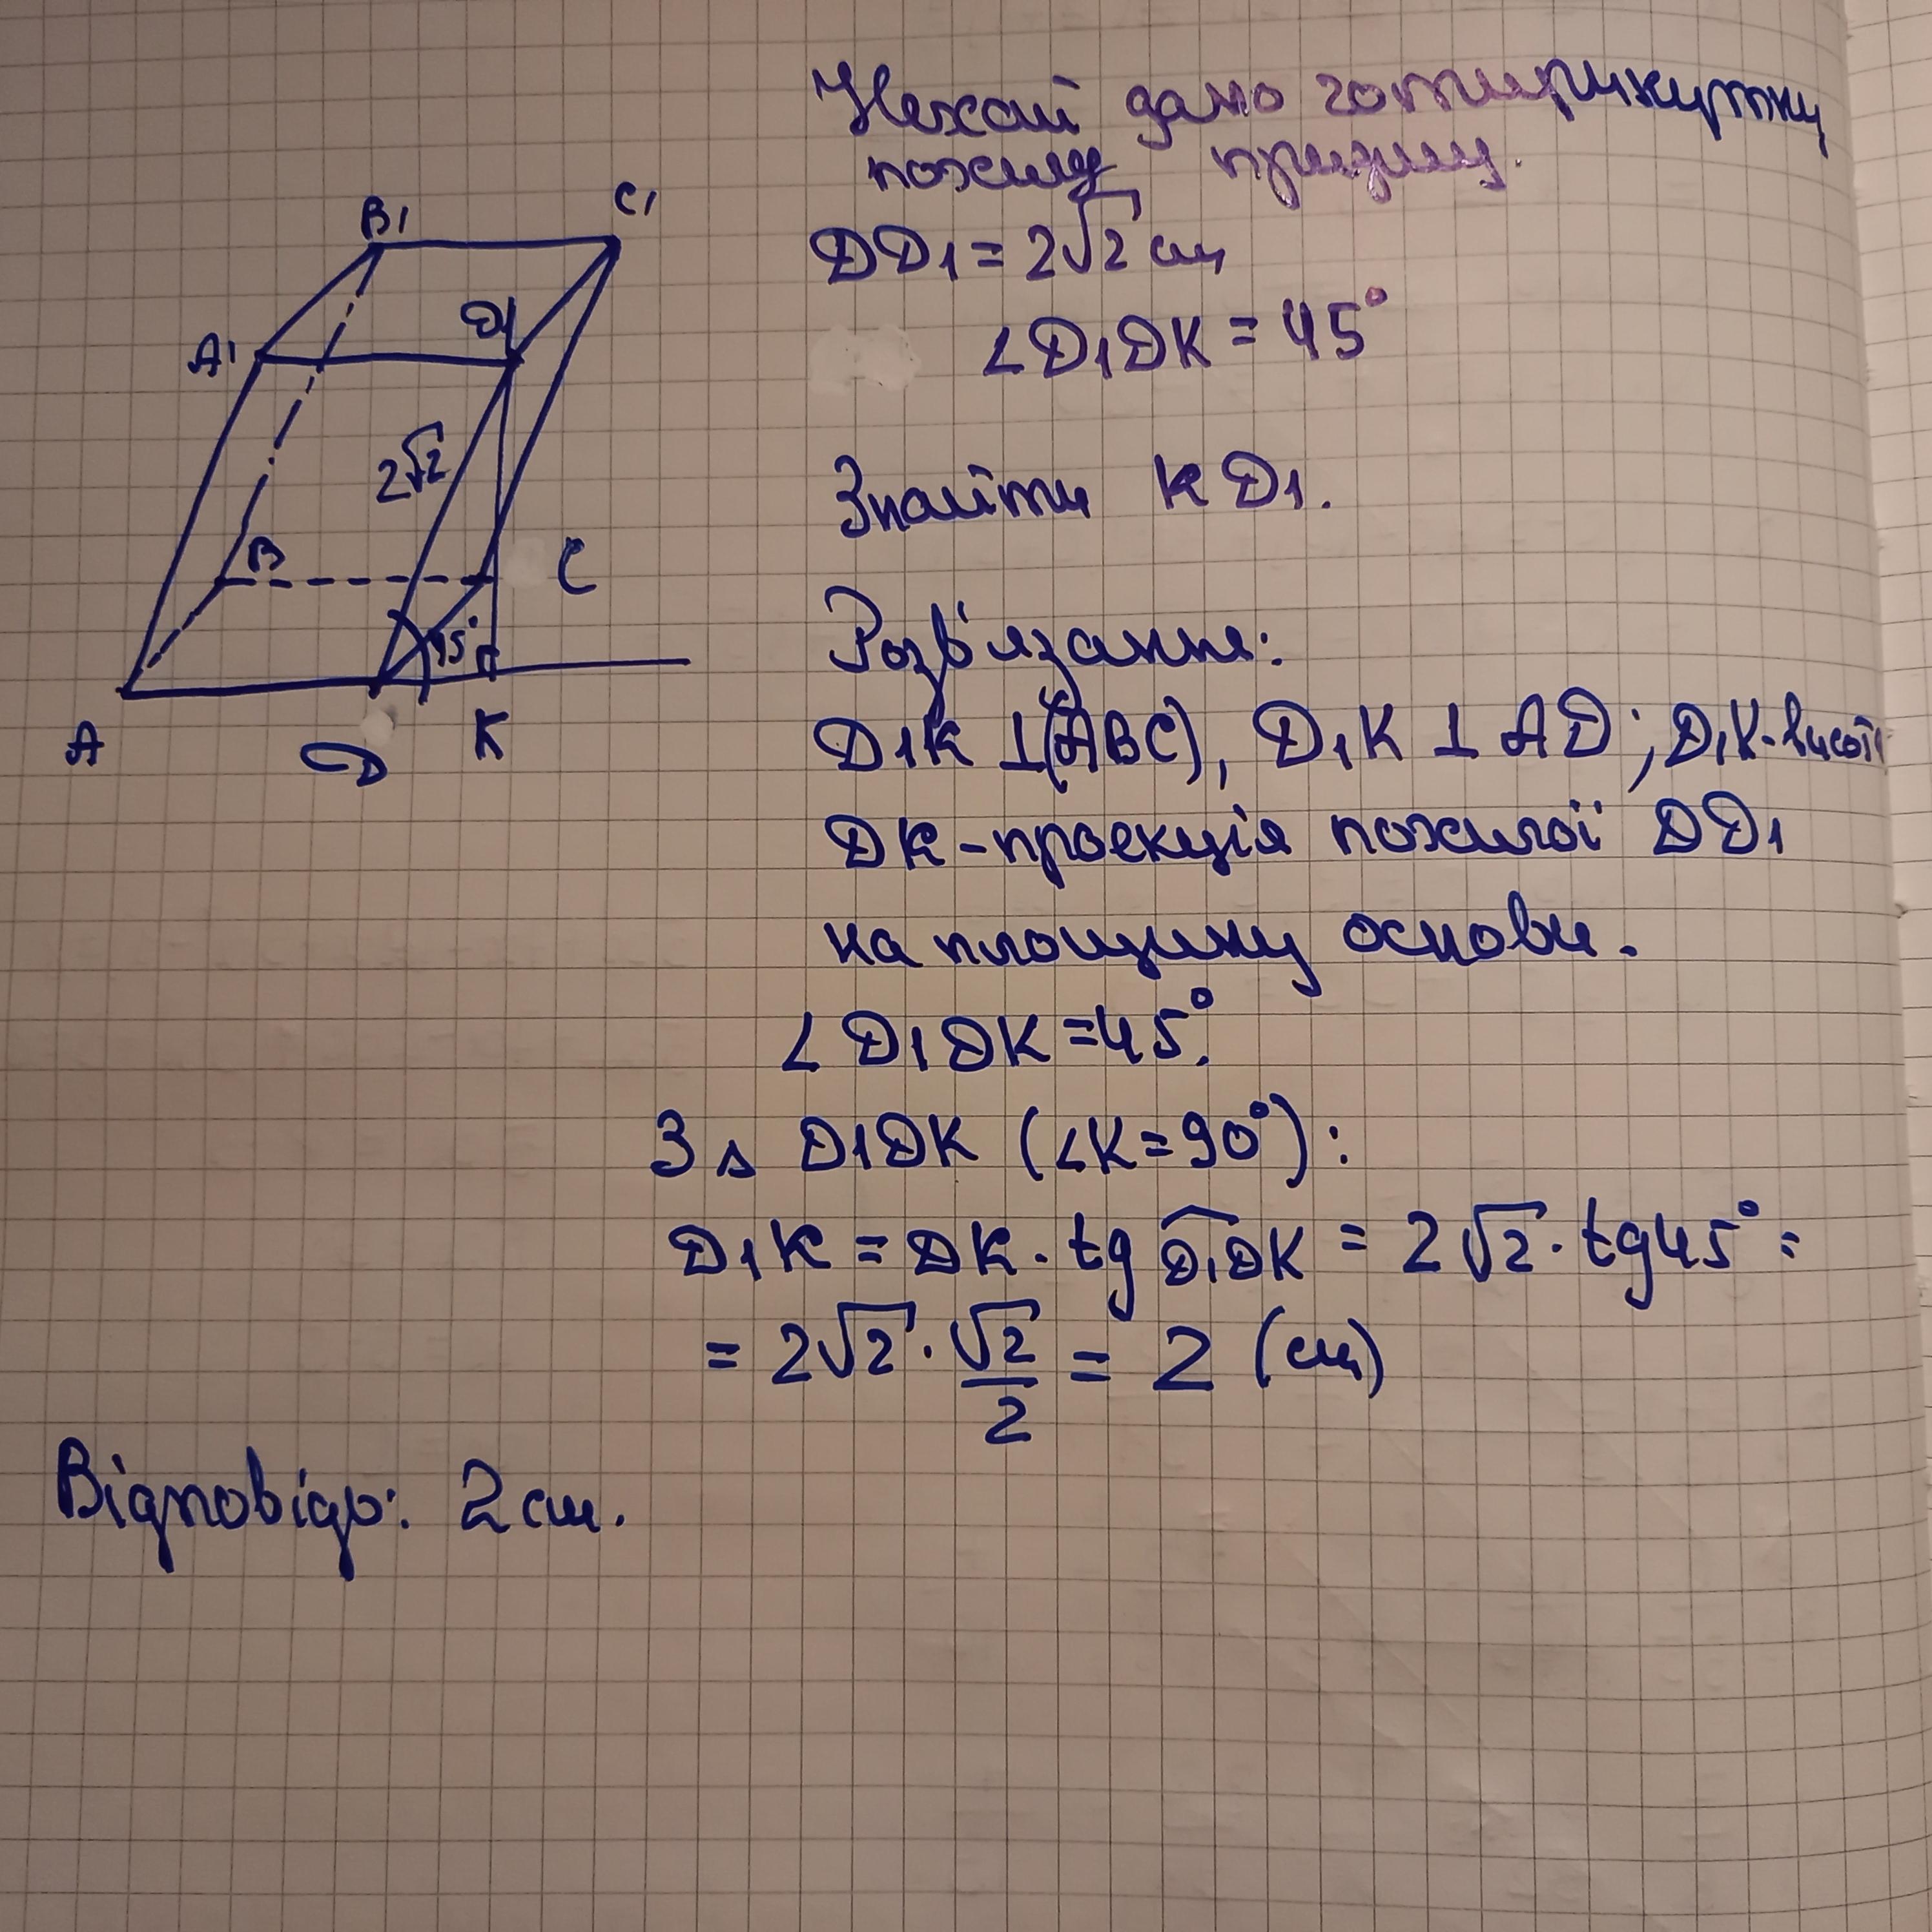 Нехай дано чотирикутну
похилу призму.
B1
C1
DD1 = 2√2 см
A1
D1
∠D1DK = 45°
2√2
Знайти KD1.
B
C
45°
Розв'язання:
A
D
K
D1K ⊥(ABC), D1K ⊥ AD; D1K-висота
DK-проекція похилої DD1
на площину основи.
∠D1DK = 45°.
З △ D1DK (∠K = 90°):
D1K = DK · tg D1DK = 2√2 · tg45° =
= 2√2 · √2/2 = 2 (см)
Відповідь: 2 см.